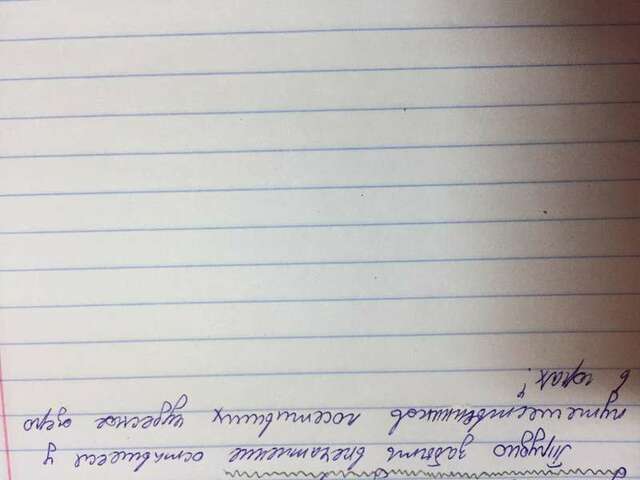 Трудно забыть впечатление оставшееся у
путешественников посетивших чудесное озеро
в горах.⁴